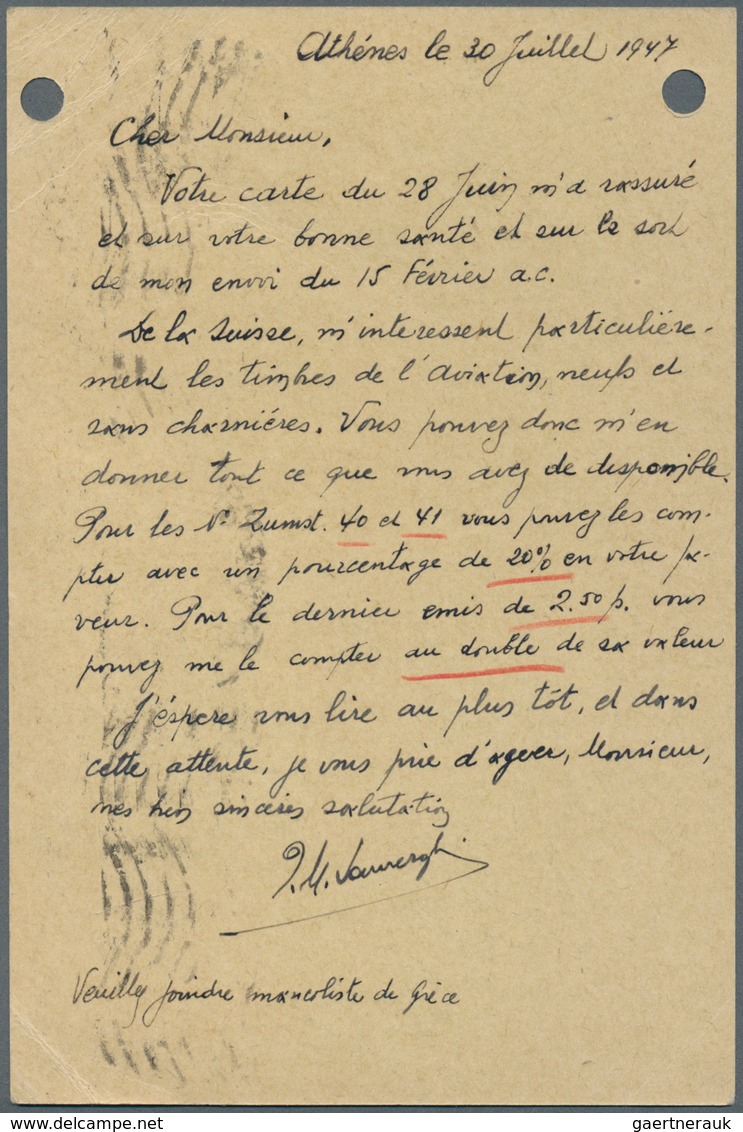 Athénes le 30 Juillet 1947
Cher Monsieur,
Votre carte du 28 Juin m'a rassuré
et sur votre bonne santé et sur le sort
de mon envoi du 15 Février a.c.
De la Suisse, m'interessent particuliére-
ment les timbres de l'aviation, neufs et
sans charniéres. Vous pouvez donc m'en
donner tout ce que vous avez de disponible.
Pour les Nº Zumst. 40 et 41 vous pouvez les com-
pter avec un pourcentage de 20% en votre fa-
veur. Pour le dernier emis de 2.50 f. vous
pouvez me le compter au double de sa valeur
J'éspere vous lire au plus tôt, et dans
cette attente, je vous prie d'agreer, Monsieur,
mes bien sinceres salutations
Veuillez joindre mancoliste de Gréce
gaertnerauk